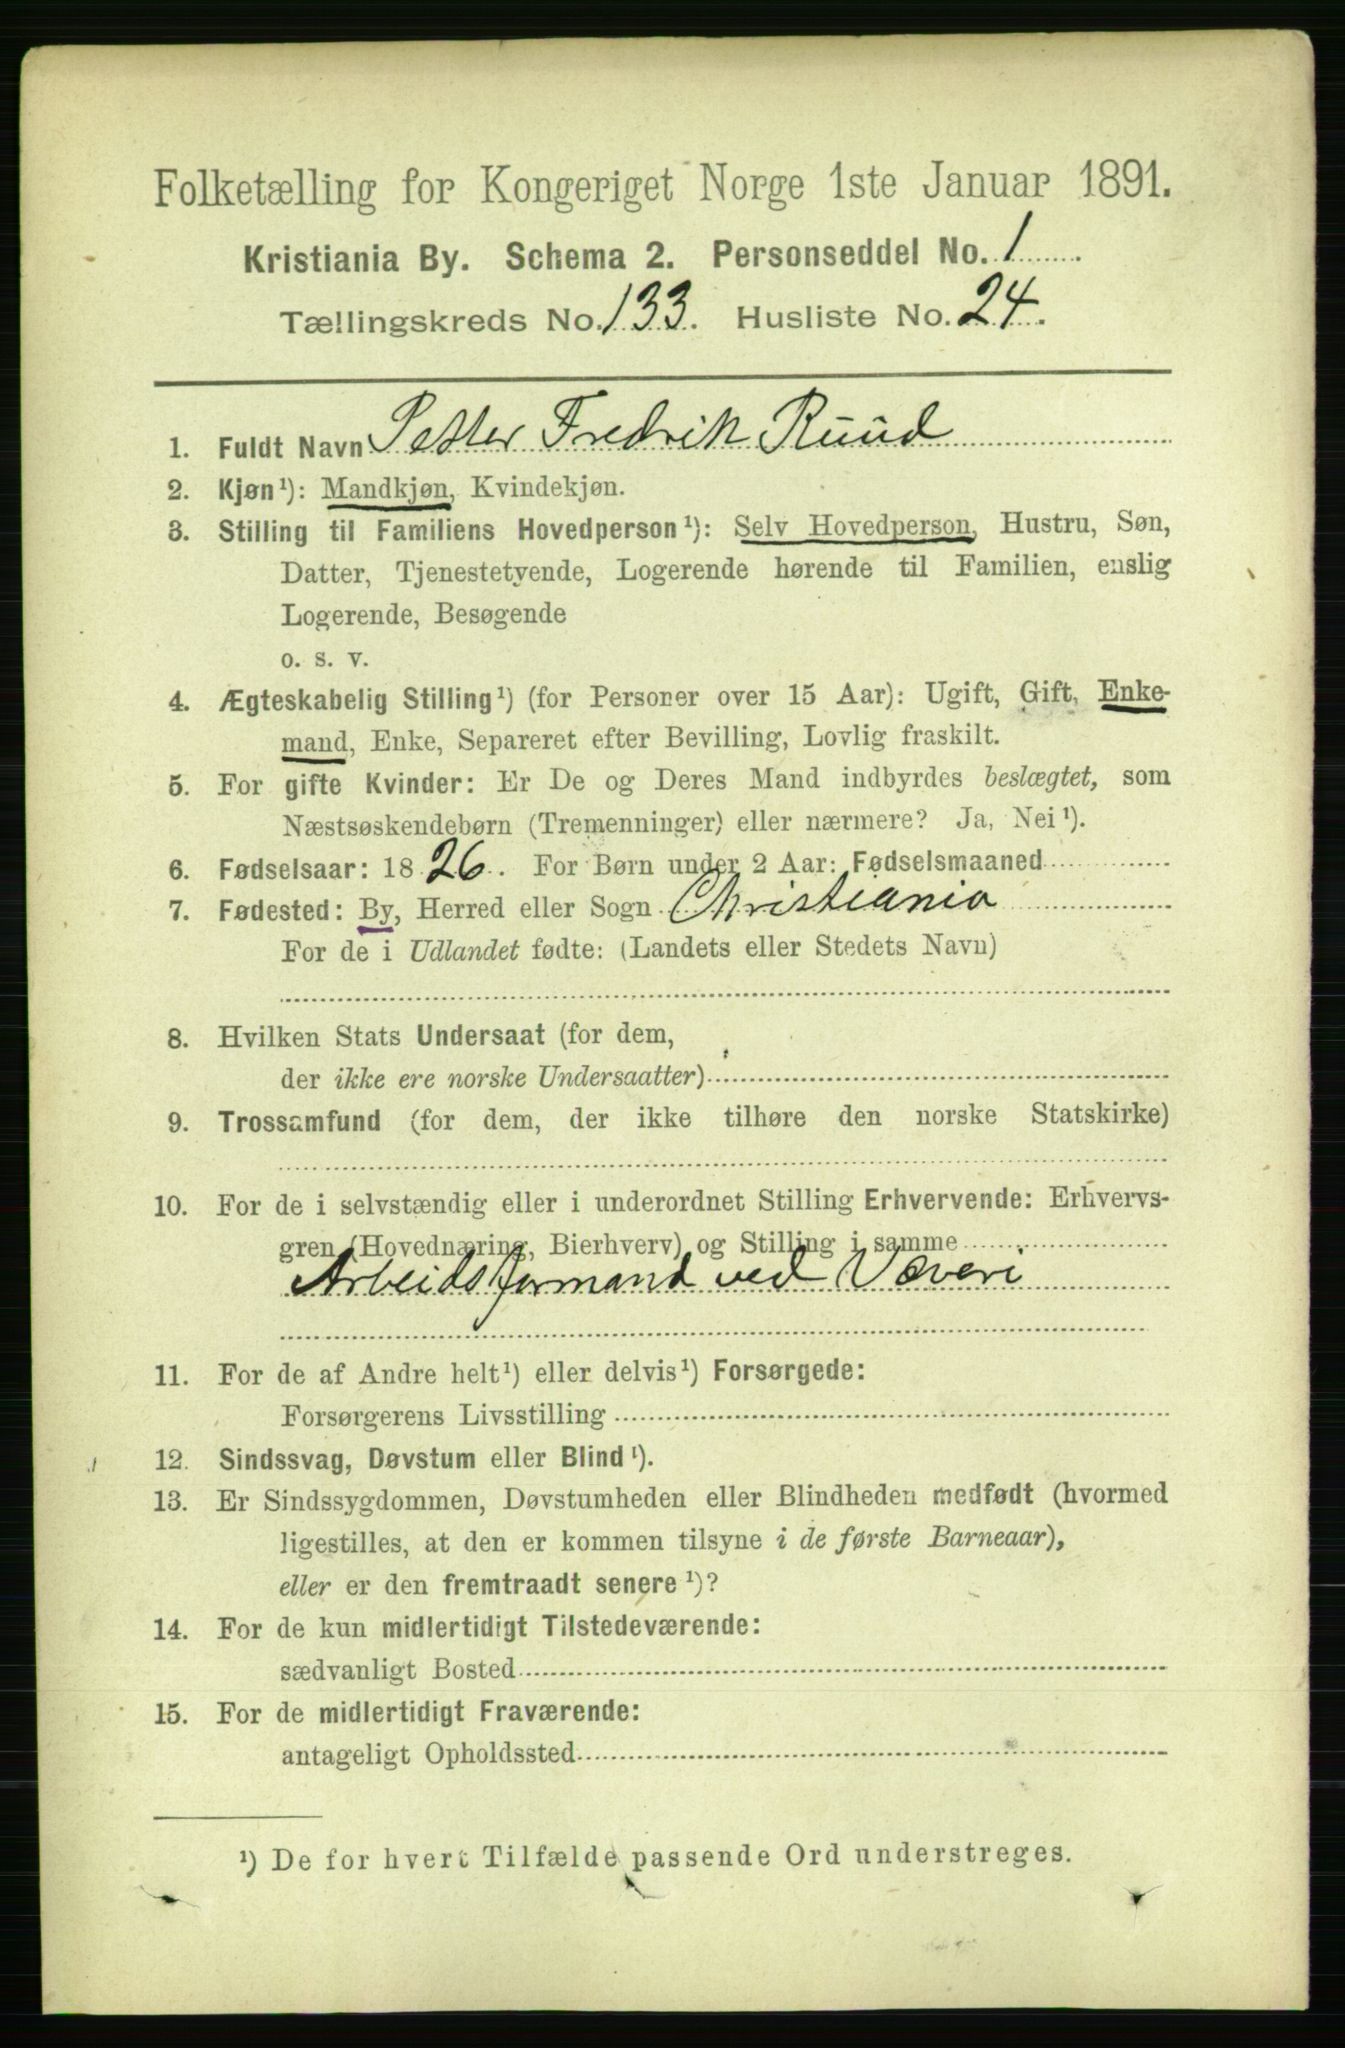 Folketælling for Kongeriget Norge 1ste Januar 1891.
Kristiania By. Schema 2. Personseddel No. 1
Tællingskreds No. 133. Husliste No. 24.
1. Fuldt Navn Petter Fredrik Ruud
2. Kjøn¹): Mandkjøn, Kvindekjøn.
3. Stilling til Familiens Hovedperson¹): Selv Hovedperson, Hustru, Søn,
Datter, Tjenestetyende, Logerende hørende til Familien, enslig
Logerende, Besøgende
o. s. v.
4. Ægteskabelig Stilling¹) (for Personer over 15 Aar): Ugift, Gift, Enke-
mand, Enke, Separeret efter Bevilling, Lovlig fraskilt.
5. For gifte Kvinder: Er De og Deres Mand indbyrdes beslægtet, som
Næstsøskendebørn (Tremenninger) eller nærmere? Ja, Nei¹).
6. Fødselsaar: 1826. For Børn under 2 Aar: Fødselsmaaned
7. Fødested: By, Herred eller Sogn Christiania
For de i Udlandet fødte: (Landets eller Stedets Navn)
8. Hvilken Stats Undersaat (for dem,
der ikke ere norske Undersaatter)
9. Trossamfund (for dem, der ikke tilhøre den norske Statskirke)
10. For de i selvstændig eller i underordnet Stilling Erhvervende: Erhvervs-
gren (Hovednæring, Bierhverv) og Stilling i samme
Arbeidsformand ved Væveri
11. For de af Andre helt¹) eller delvis¹) Forsørgede:
Forsørgerens Livsstilling
12. Sindssvag, Døvstum eller Blind¹).
13. Er Sindssygdommen, Døvstumheden eller Blindheden medfødt (hvormed
ligestilles, at den er kommen tilsyne i de første Barneaar),
eller er den fremtraadt senere¹)?
14. For de kun midlertidigt Tilstedeværende:
sædvanligt Bosted
15. For de midlertidigt Fraværende:
antageligt Opholdssted
¹) De for hvert Tilfælde passende Ord understreges.